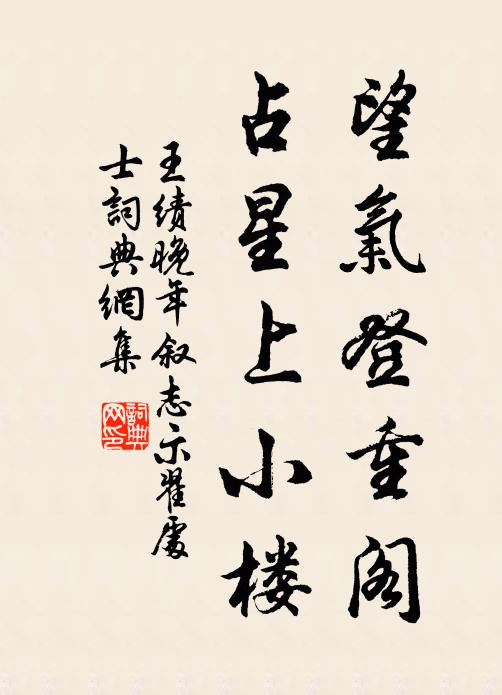 望氣登重阁
占星上小楼
王绩晚年叙志示翟處
士詞典網集
詞典网印